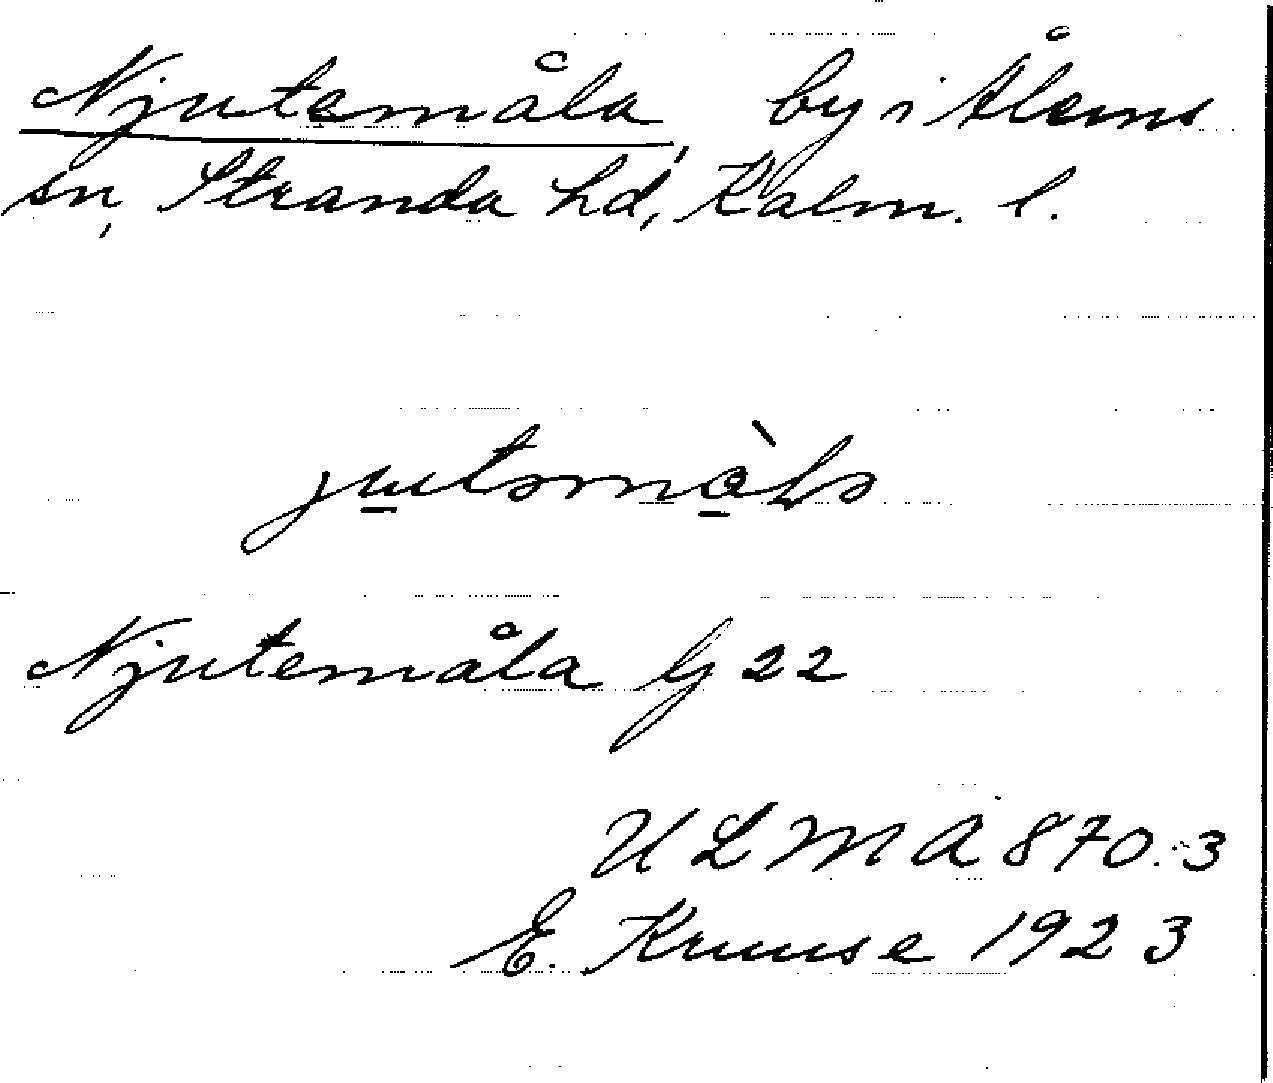 Njutemåla, by i Ålems
sn, Stranda hd, Kalm. l.
Njutemåla Gj 22
ULMA 870:3
E. Kruuse 1923